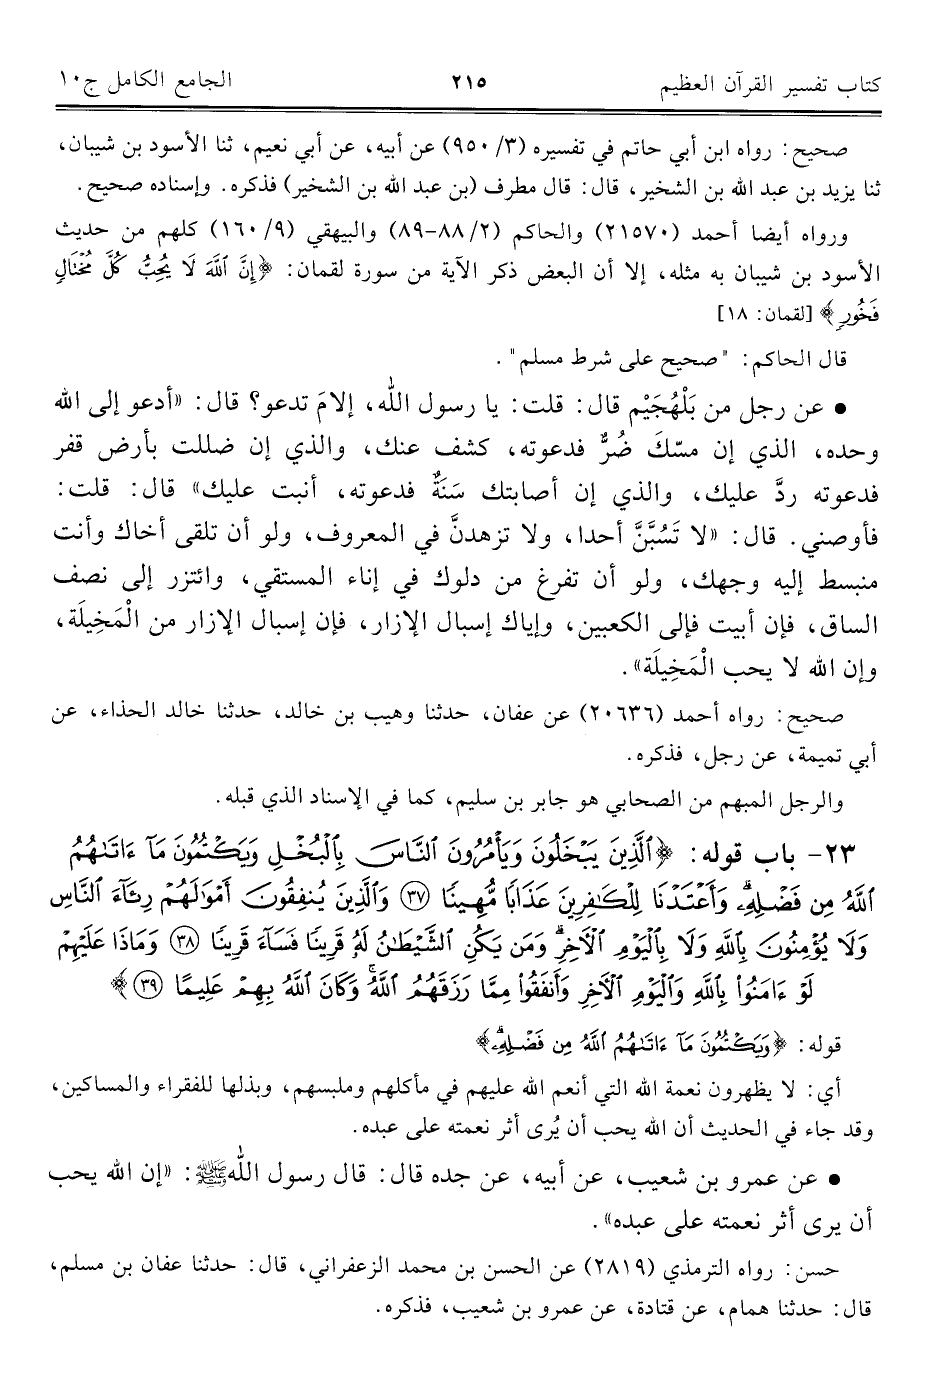 كتاب تفسير القرآن العظيم ٢١٥ الجامع الكامل ج١٠
صحيح: رواه ابن أبي حاتم في تفسيره (٩٥٠/٣) عن أبيه، عن أبي نعيم، ثنا الأسود بن شيبان،
ثنا يزيد بن عبد الله بن الشخير، قال: قال مطرف (بن عبد الله بن الشخير) فذكره. وإسناده صحيح.
ورواه أيضا أحمد (٢١٥٧٠) والحاكم (٨٨/٢-٨٩) والبيهقي (١٦٠/٩) كلهم من حديث
الأسود بن شيبان به مثله، إلا أن البعض ذكر الآية من سورة لقمان: ﴿إِنَّ ٱللَّهَ لَا يُحِبُّ كُلَّ مُخْتَالٍ
فَخُورٍ﴾ [لقمان: ١٨]
قال الحاكم: "صحيح على شرط مسلم".
• عن رجل من بَلْهُجَيْم قال: قلت: يا رسول الله، إلامَ تدعو؟ قال: «أدعو إلى الله
وحده، الذي إن مسّكَ ضُرٌّ فدعوته، كشف عنك، والذي إن ضللت بأرض قفر
فدعوته ردَّ عليك، والذي إن أصابتك سَنَةٌ فدعوته، أنبت عليك» قال: قلت:
فأوصني. قال: «لا تَسُبَّنَّ أحدا، ولا تزهدنَّ في المعروف، ولو أن تلقى أخاك وأنت
منبسط إليه وجهك، ولو أن تفرغ من دلوك في إناء المستقي، وائتزر إلى نصف
الساق، فإن أبيت فإلى الكعبين، وإياك إسبال الإزار، فإن إسبال الإزار من الْمَخِيلَة،
وإن الله لا يحب الْمَخِيلَة».
صحيح: رواه أحمد (٢٠٦٣٦) عن عفان، حدثنا وهيب بن خالد، حدثنا خالد الحذاء، عن
أبي تميمة، عن رجل، فذكره.
والرجل المبهم من الصحابي هو جابر بن سليم، كما في الإسناد الذي قبله.
٢٣- باب قوله: ﴿ٱلَّذِينَ يَبْخَلُونَ وَيَأْمُرُونَ ٱلنَّاسَ بِٱلْبُخْلِ وَيَكْتُمُونَ مَآ ءَاتَىٰهُمُ
ٱللَّهُ مِن فَضْلِهِۦ ۗ وَأَعْتَدْنَا لِلْكَٰفِرِينَ عَذَابًا مُّهِينًا ٣٧ وَٱلَّذِينَ يُنفِقُونَ أَمْوَٰلَهُمْ رِئَآءَ ٱلنَّاسِ
وَلَا يُؤْمِنُونَ بِٱللَّهِ وَلَا بِٱلْيَوْمِ ٱلْآخِرِ ۗ وَمَن يَكُنِ ٱلشَّيْطَٰنُ لَهُۥ قَرِينًا فَسَآءَ قَرِينًا ٣٨ وَمَاذَا عَلَيْهِمْ
لَوْ ءَامَنُوا۟ بِٱللَّهِ وَٱلْيَوْمِ ٱلْآخِرِ وَأَنفَقُوا۟ مِمَّا رَزَقَهُمُ ٱللَّهُ ۚ وَكَانَ ٱللَّهُ بِهِمْ عَلِيمًا ٣٩﴾
قوله: ﴿وَيَكْتُمُونَ مَآ ءَاتَىٰهُمُ ٱللَّهُ مِن فَضْلِهِۦ ۗ﴾
أي: لا يظهرون نعمة الله التي أنعم الله عليهم في مأكلهم وملبسهم، وبذلها للفقراء والمساكين،
وقد جاء في الحديث أن الله يحب أن يُرى أثر نعمته على عبده.
• عن عمرو بن شعيب، عن أبيه، عن جده قال: قال رسول الله ﷺ: «إن الله يحب
أن يرى أثر نعمته على عبده».
حسن: رواه الترمذي (٢٨١٩) عن الحسن بن محمد الزعفراني، قال: حدثنا عفان بن مسلم،
قال: حدثنا همام، عن قتادة، عن عمرو بن شعيب، فذكره.